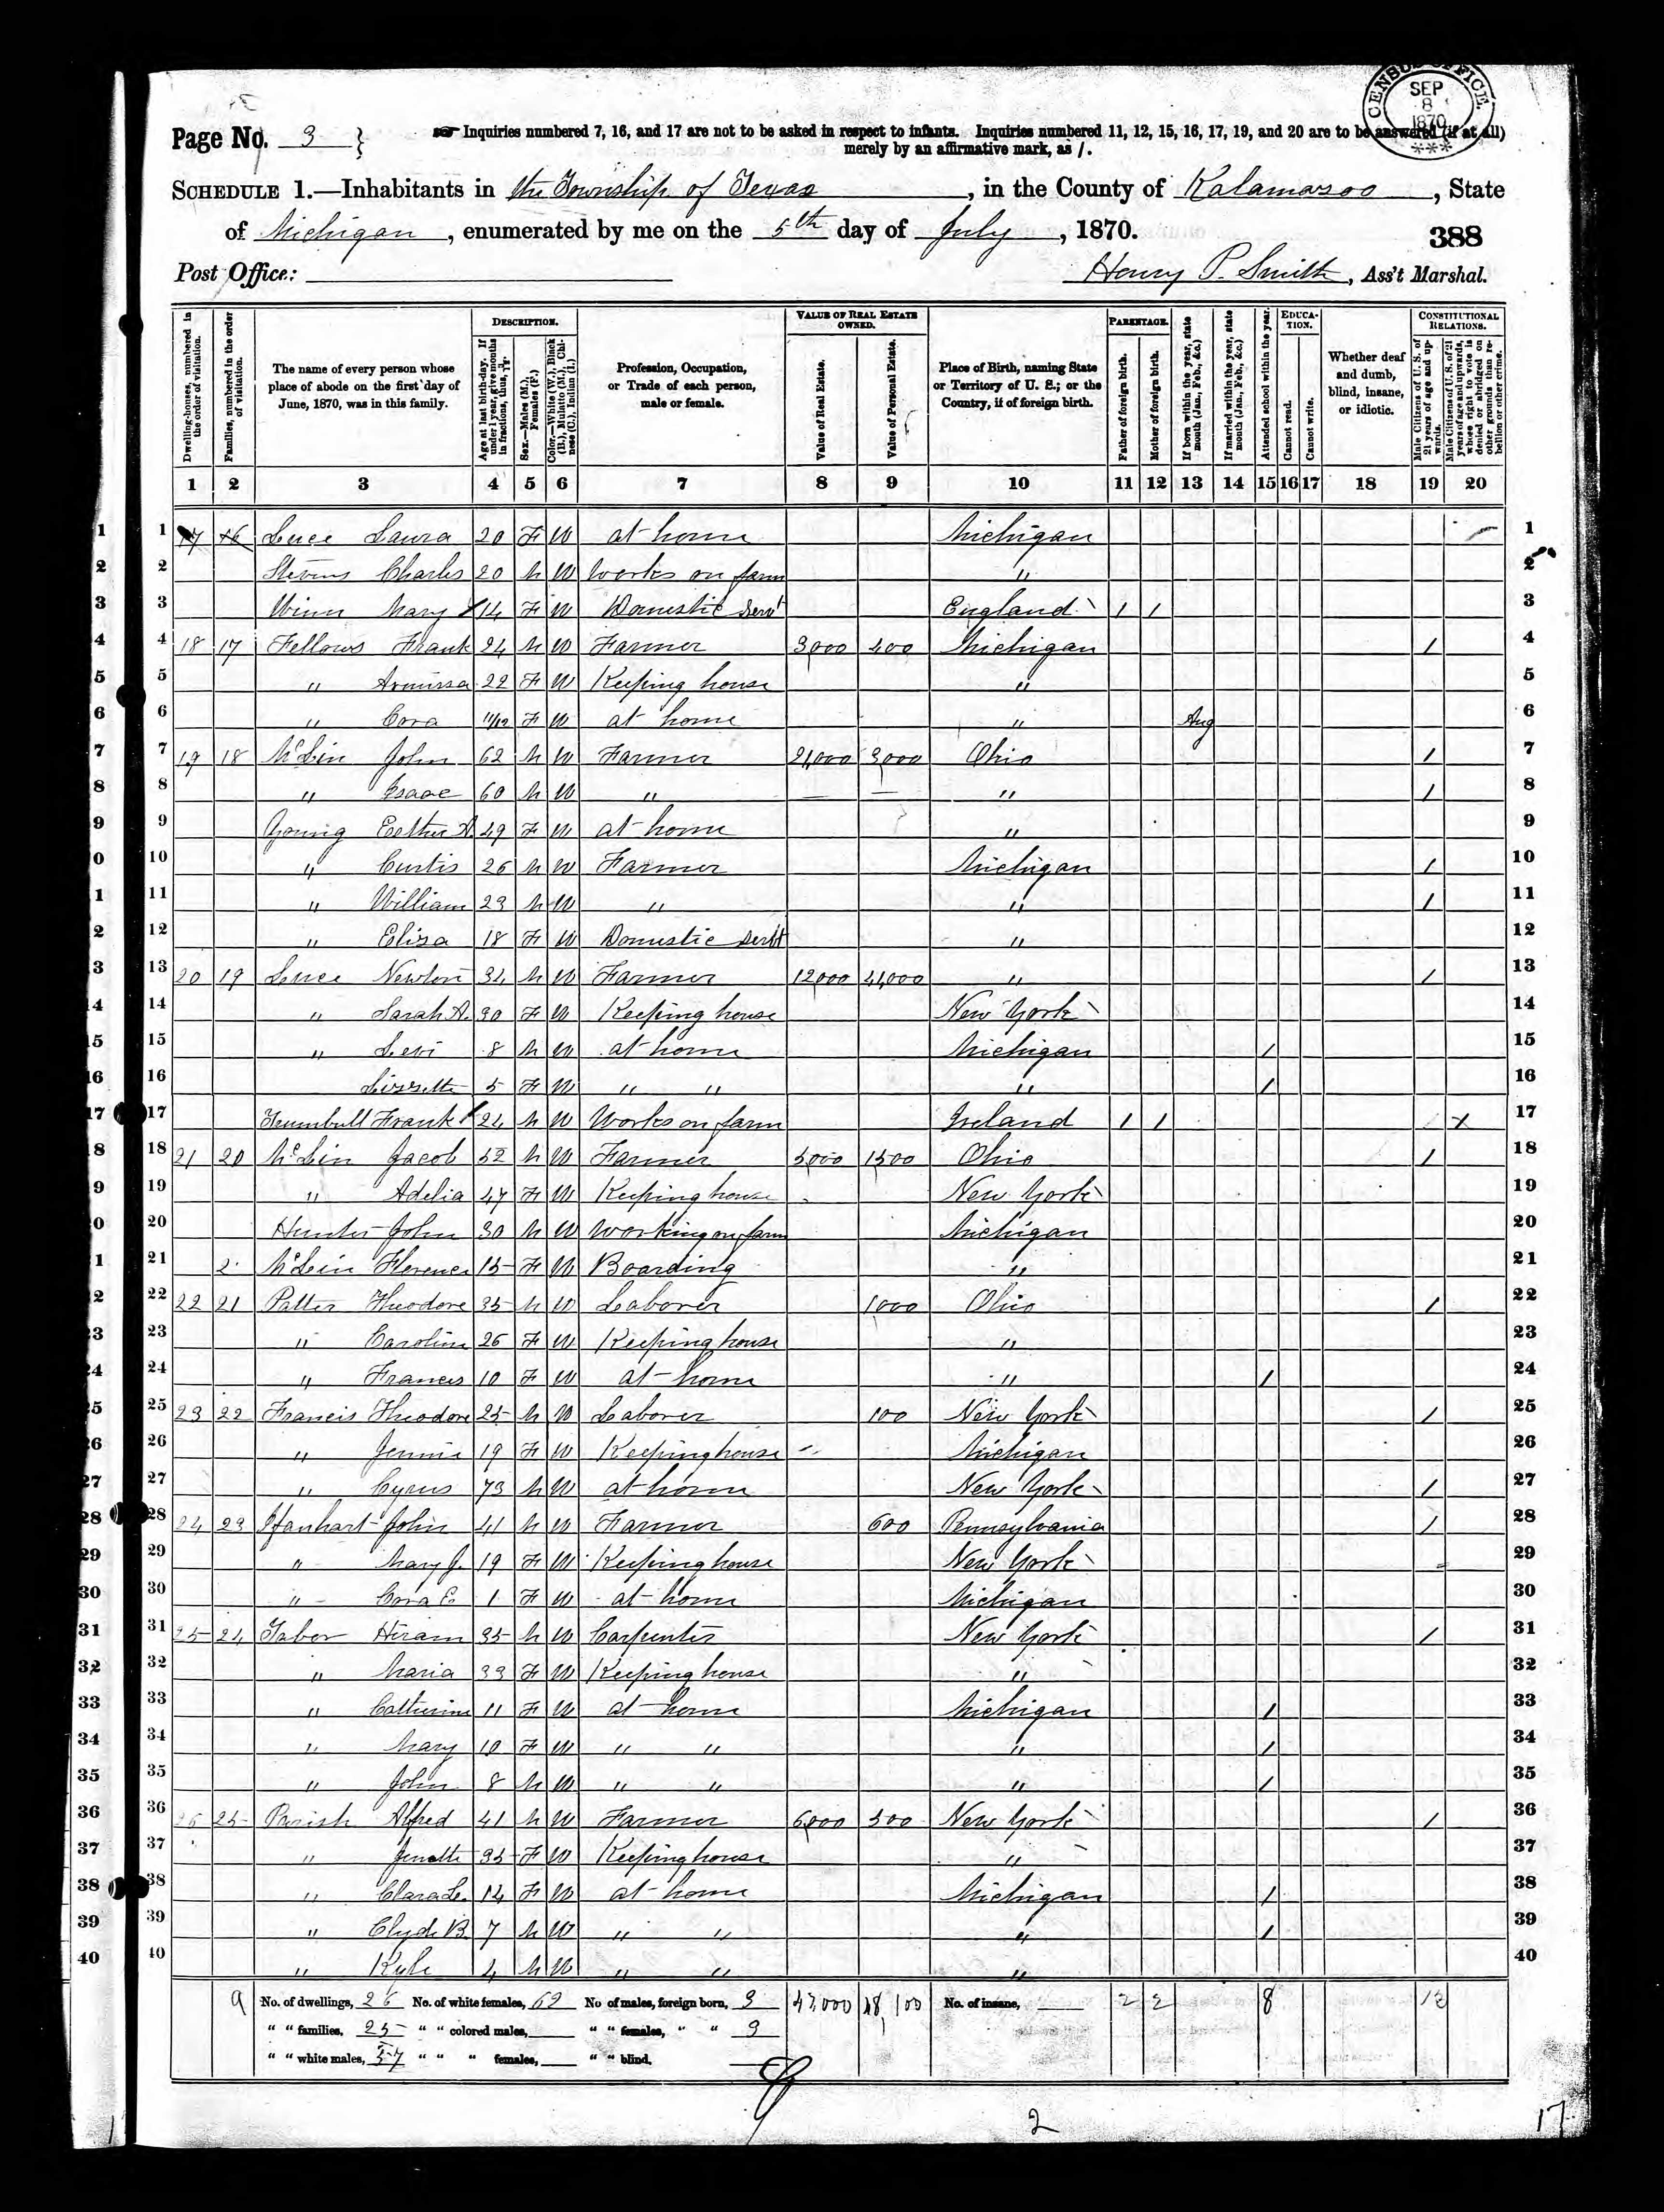 CENSUS OFFICE SEP 8 1870 ***
Page No. 3 } Inquiries numbered 7, 16, and 17 are not to be asked in respect to infants. Inquiries numbered 11, 12, 15, 16, 17, 19, and 20 are to be answered (if at all)
merely by an affirmative mark, as /.
SCHEDULE 1.—Inhabitants in the Township of Texas, in the County of Kalamazoo, State
of Michigan, enumerated by me on the 5th day of July, 1870.
388
Post Office: Henry P. Smith, Ass't Marshal.
Dwelling-houses, numbered in the order of visitation.
Families, numbered in the order of visitation.
The name of every person whose place of abode on the first day of June, 1870, was in this family.
DESCRIPTION.
Age at last birth-day. If under 1 year, give months in fractions, thus,
Sex.—Males (M.), Females (F.)
Color.—White (W.), Black (B.), Mulatto (M.), Chinese (C.), Indian (I.)
Profession, Occupation, or Trade of each person, male or female.
VALUE OF REAL ESTATE OWNED.
Value of Real Estate.
Value of Personal Estate.
Place of Birth, naming State or Territory of U. S.; or the Country, if of foreign birth.
PARENTAGE.
Father of foreign birth.
Mother of foreign birth.
If born within the year, state month (Jan., Feb., &c.)
If married within the year, state month (Jan., Feb., &c.)
Attended school within the year.
EDUCATION.
Cannot read.
Cannot write.
Whether deaf and dumb, blind, insane, or idiotic.
CONSTITUTIONAL RELATIONS.
Male Citizens of U. S. of 21 years of age and upwards.
Male Citizens of U. S. of 21 years of age and upwards, whose right to vote is denied or abridged on other grounds than rebellion or other crime.
1 2 3 4 5 6 7 8 9 10 11 12 13 14 15 16 17 18 19 20
1 17 16 Luce Laura 20 F W at home Michigan 1
2 Stevens Charles 20 M W Works on farm " 2
3 Winn Mary 14 F W Domestic Servt England / / 3
4 18 17 Fellows Frank 24 M W Farmer 3000 400 Michigan / 4
5 " Armissa 22 F W Keeping house " 5
6 " Cora 11/12 F W at home " Aug 6
7 19 18 McLin John 62 M W Farmer 21,000 3,000 Ohio / 7
8 " Isaac 60 M W " — — " / 8
9 Young Esther A. 49 F W at home " 9
10 " Curtis 26 M W Farmer Michigan / 10
11 " William 23 M W " " / 11
12 " Eliza 18 F W Domestic Servt " 12
13 20 19 Luce Newton 34 M W Farmer 12000 41,000 " / 13
14 " Sarah A. 30 F W Keeping house New York 14
15 " Levi 8 M W at home Michigan / 15
16 Lizzette 5 F W " " " / 16
17 Trumbull Frank 24 M W Works on farm Ireland / / x 17
18 21 20 McLin Jacob 52 M W Farmer 5,000 1500 Ohio / 18
19 " Adelia 47 F W Keeping house New York 19
20 Hunter John 30 M W Working on farm Michigan 20
21 2 McLin Florence 15 F W Boarding " 21
22 22 21 Patter Theodore 35 M W Laborer 1000 Ohio / 22
23 " Caroline 26 F W Keeping house " 23
24 " Frances 10 F W at home " / 24
25 23 22 Francis Theodore 25 M W Laborer 100 New York / 25
26 " Jennie 19 F W Keeping house Michigan 26
27 " Cyrus 73 M W at home New York / 27
28 24 23 John 41 M W Farmer 600 Pennsylvania / 28
29 " Mary J. 19 F W Keeping house New York 29
30 " Cora E. 1 F W at home Michigan 30
31 25 24 Tabor Hiram 35 M W Carpenter New York / 31
32 " Maria 33 F W Keeping house " 32
33 " Catherine 11 F W at home Michigan / 33
34 " Mary 10 F W " " " / 34
35 " John 8 M W " " " / 35
36 26 25 Parish Alfred 41 M W Farmer 6,000 500 New York / 36
37 " Jenette 35 F W Keeping house " 37
38 " Clara L. 14 F W at home Michigan / 38
39 " Clyde B. 7 M W " " " / 39
40 " Kyle 4 M W " " " 40
9 No. of dwellings, 26 No. of white females, 62 No of males, foreign born, 3 47,000 18,100 No. of insane, 2 2 8 13
" " families, 25 " " colored males, " " females, " " 9
" " white males, 57 " " " females, " " blind,
2
17